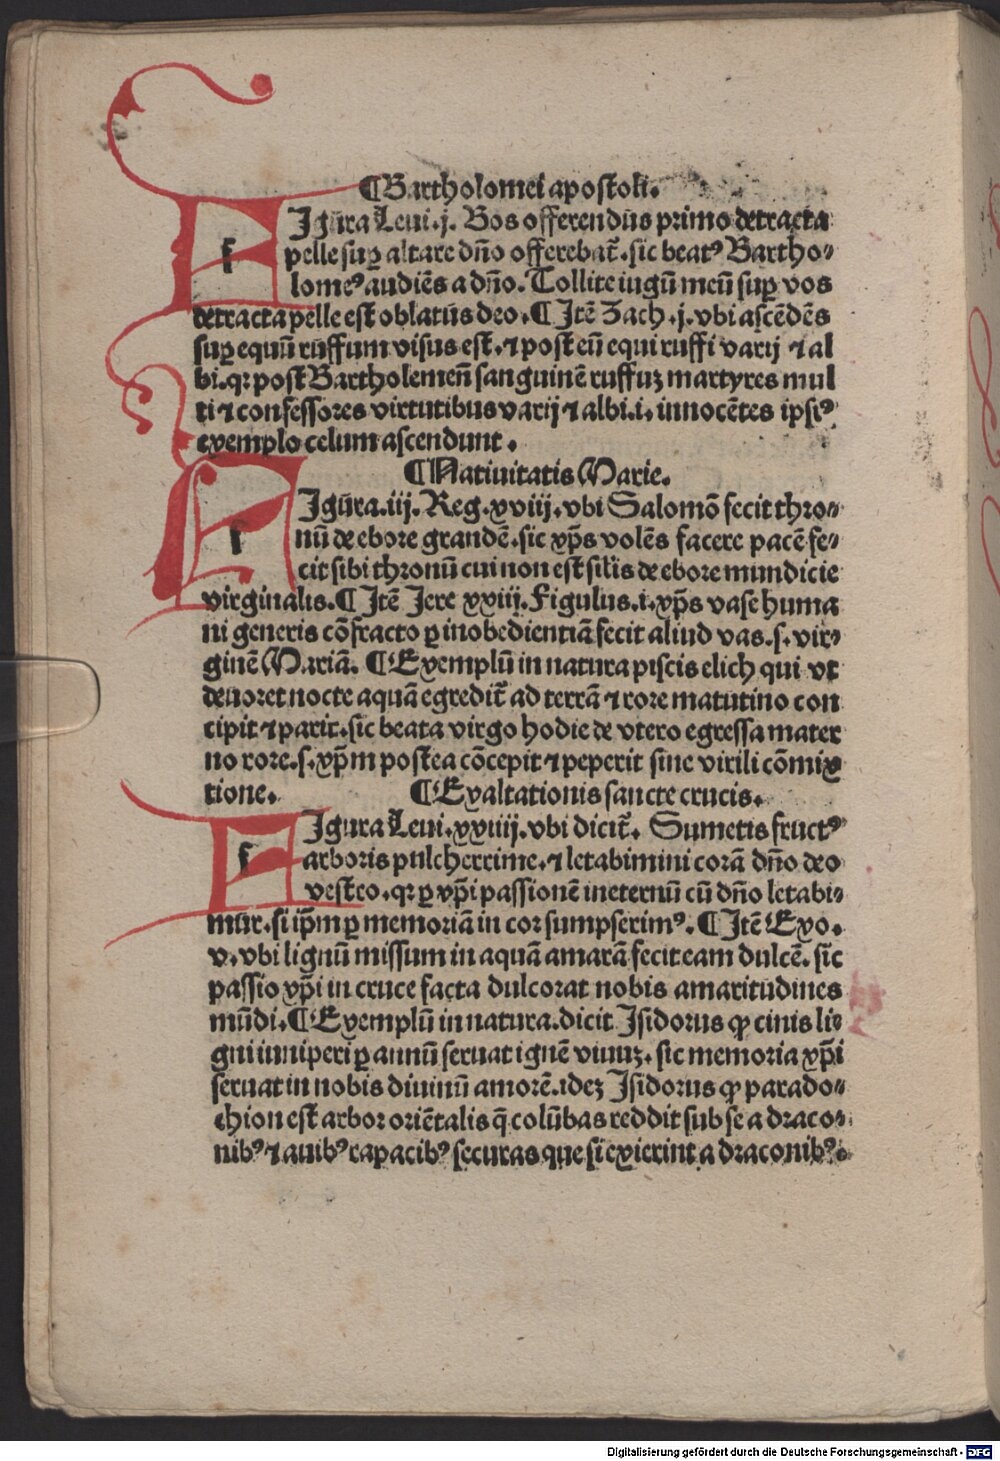 ¶Bartholomei apostoli.
FIgura Leui.j. Bos offerendus primo detracta
pelle suꝑ altare dño offerebat̃.sic beatꝰ Bartho⸗
lomeꝰ audiẽs a dño. Tollite iugũ meũ suꝑ vos
detracta pelle est oblatus deo.¶Itẽ Zach.j.vbi ascẽdẽs
suꝑ equũ ruffum visus est.⁊ post eũ equi ruffi varij ⁊ al
bi.qꝛ post Bartholemeũ sanguinẽ ruffuꝫ martyres mul
ti ⁊ confessores virtutibus varij ⁊ albi.i.innocẽtes ipsiꝰ
exemplo celum ascendunt.
¶Natiuitatis Marie.
FIgura.iij.Reg.xviij.vbi Salomõ fecit thro⸗
nũ de ebore grandẽ.sic xp̃s volẽs facere pacẽ fe⸗
cit sibi thronũ cui non est silis de ebore mundicie
virginalis.¶Itẽ Jere xxiij.Figulus.i.xp̃s vase huma
ni generis cõfracto ꝑ inobedientiã fecit aliud vas.s.vir⸗
ginẽ Mariã. ¶Exemplũ in natura piscis elich qui vt
deuoret nocte aquã egredit̃ ad terrã ⁊ rore matutino con
cipit ⁊ parit.sic beata virgo hodie de vtero egressa mater
no rore.s.xp̃m postea cõcepit ⁊ peperit sine virili cõmix
tione. ¶Exaltationis sancte crucis.
FIgura Leui.xxiiij.vbi dicit̃. Sumetis fructꝰ
arboris pulcherrime.⁊ letabimini corã dño deo
vestro.qꝛ ꝑ xp̃i passionẽ in eternũ cũ dño letabi⸗
mur.si ip̃m ꝑ memoriã in cor sumpserimꝰ.¶Itẽ Exo.
v.vbi lignũ missum in aquã amarã fecit eam dulcẽ.sic
passio xp̃i in cruce facta dulcorat nobis amaritudines
mũdi.¶Exemplũ in natura.dicit Isidorus ꝙ cinis li⸗
gni iuniperi ꝑ annũ seruat ignẽ viuuꝫ.sic memoria xp̃i
seruat in nobis diuinũ amorẽ.ideꝫ Isidorus ꝙ parado⸗
chion est arbor oriẽtalis q̃ colũbas reddit sub se a draco⸗
nibꝰ ⁊ auibꝰ rapacibꝰ securas que si exierint a draconibꝰ⸗
Digitalisierung gefördert durch die Deutsche Forschungsgemeinschaft - DFG